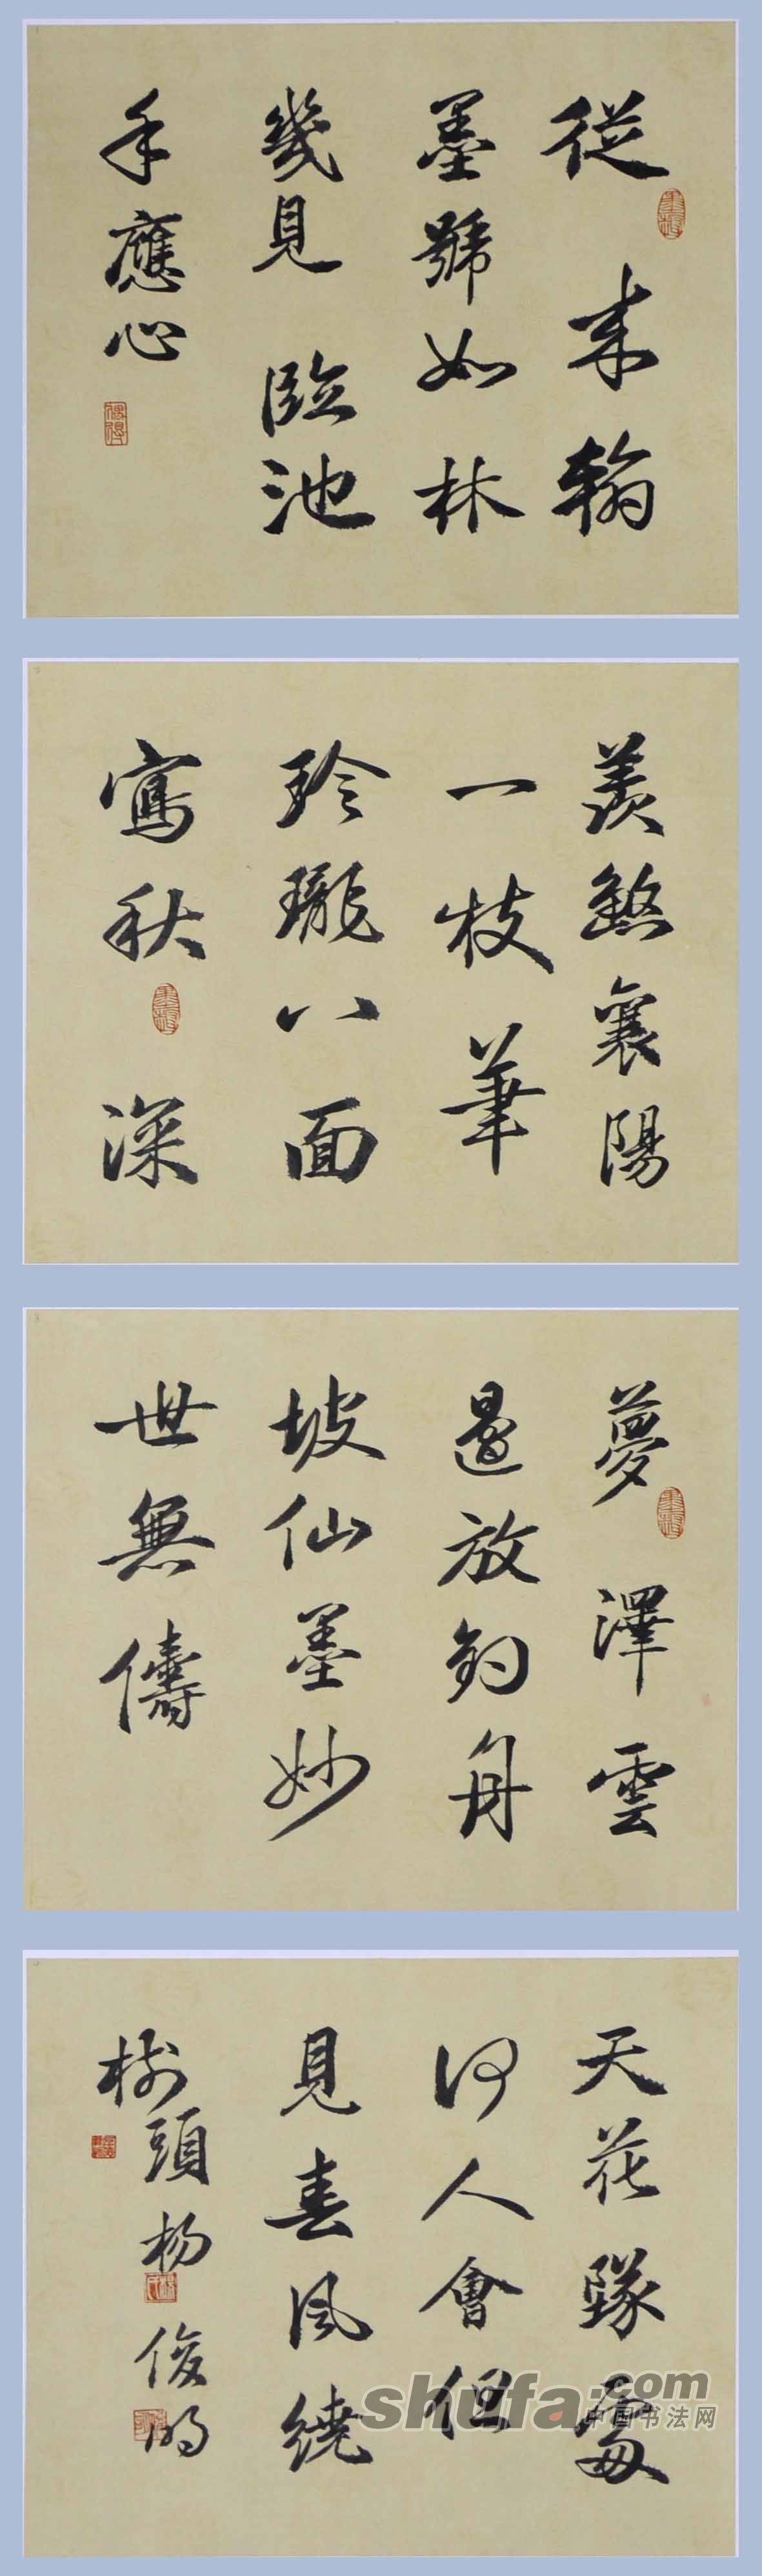 從來翰
墨號如林
幾見臨池
手應心
羨煞襄陽
一枝筆
玲瓏八面
寫秋深
夢澤雲
邊放釣舟
坡仙墨妙
世無儔
天花墜處
何人會但
見春風繞
樹頭楊俊明
shufa.com
中国书法网